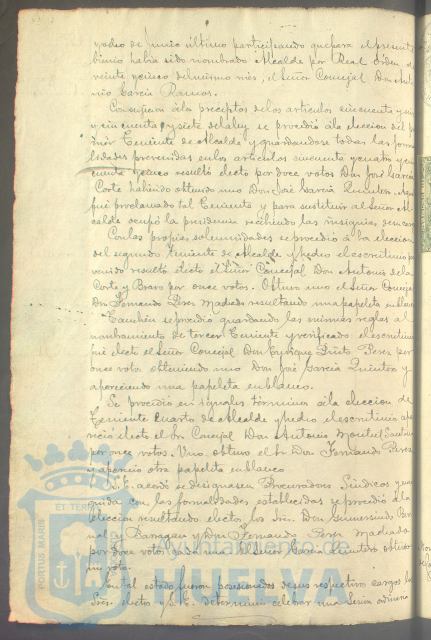 y ocho de Junio último participando que para el presente
bienio habia sido nombrado Alcalde por Real Orden de
veinte y cinco del mismo mes, el Señor Concejal Don Anto
nio Garcia Ramos.
Con sujecion á los preceptos de los articulos cincuenta y
y cincuenta y siete de la ley se procedió á la eleccion del pri
mer Teniente de Alcalde y guardandose todas las forma
lidades prevenidas en los articulos cincuenta y cuatro y cin
cuenta y cinco resultó electo por doce votos Don José Garcia
Corte habiendo obtenido uno Don José Garcia Quintero.
fué proclamado tal Teniente y para sustituir al Señor Al
calde ocupó la presidencia recibiendo las insignias de su cargo
Con las propias solemnidades se procedió á la eleccion
del segundo Teniente de Alcalde y hecho el escrutinio
venido resultó electo el Señor Concejal Don Antonio de la
Corte y Bravo por once votos. Obtuvo uno el Señor Concejal
Don Fernando Perez Machado resultando una papeleta en blanco
Tambien se procedió guardando las mismas reglas al
nombramiento de tercer Teniente y verificado el escrutinio
fué electo el Señor Concejal Don Enrique Prieto Perez por
once votos obteniendo uno Don José Garcia Quintero y
apareciendo una papeleta en blanco.
Se procedió en iguales términos á la eleccion de
Teniente cuarto de Alcalde y hecho el escrutinio apa
reció electo el Sr. Concejal Don Antonio Montiel
por once votos. Uno obtuvo el Sr. Don Fernando Perez
y apareció otra papeleta en blanco
S.E. acordó se designasen Procuradores Sindicos y
con las formalidades establecidas se procedió á la
eleccion resultando electos los Sres. Don Gumersindo
y Don Fernando Perez Machado
por doce votos cada uno. El Señor Garcia Quintero obtuvo
un voto.
En tal estado fueron posesionados de sus respectivos cargos los
Sres. electos y S.E. determinó celebrar una Sesion ordinaria
PORTUS MARIS ET TERRAE
Ayuntamiento de
HUELVA